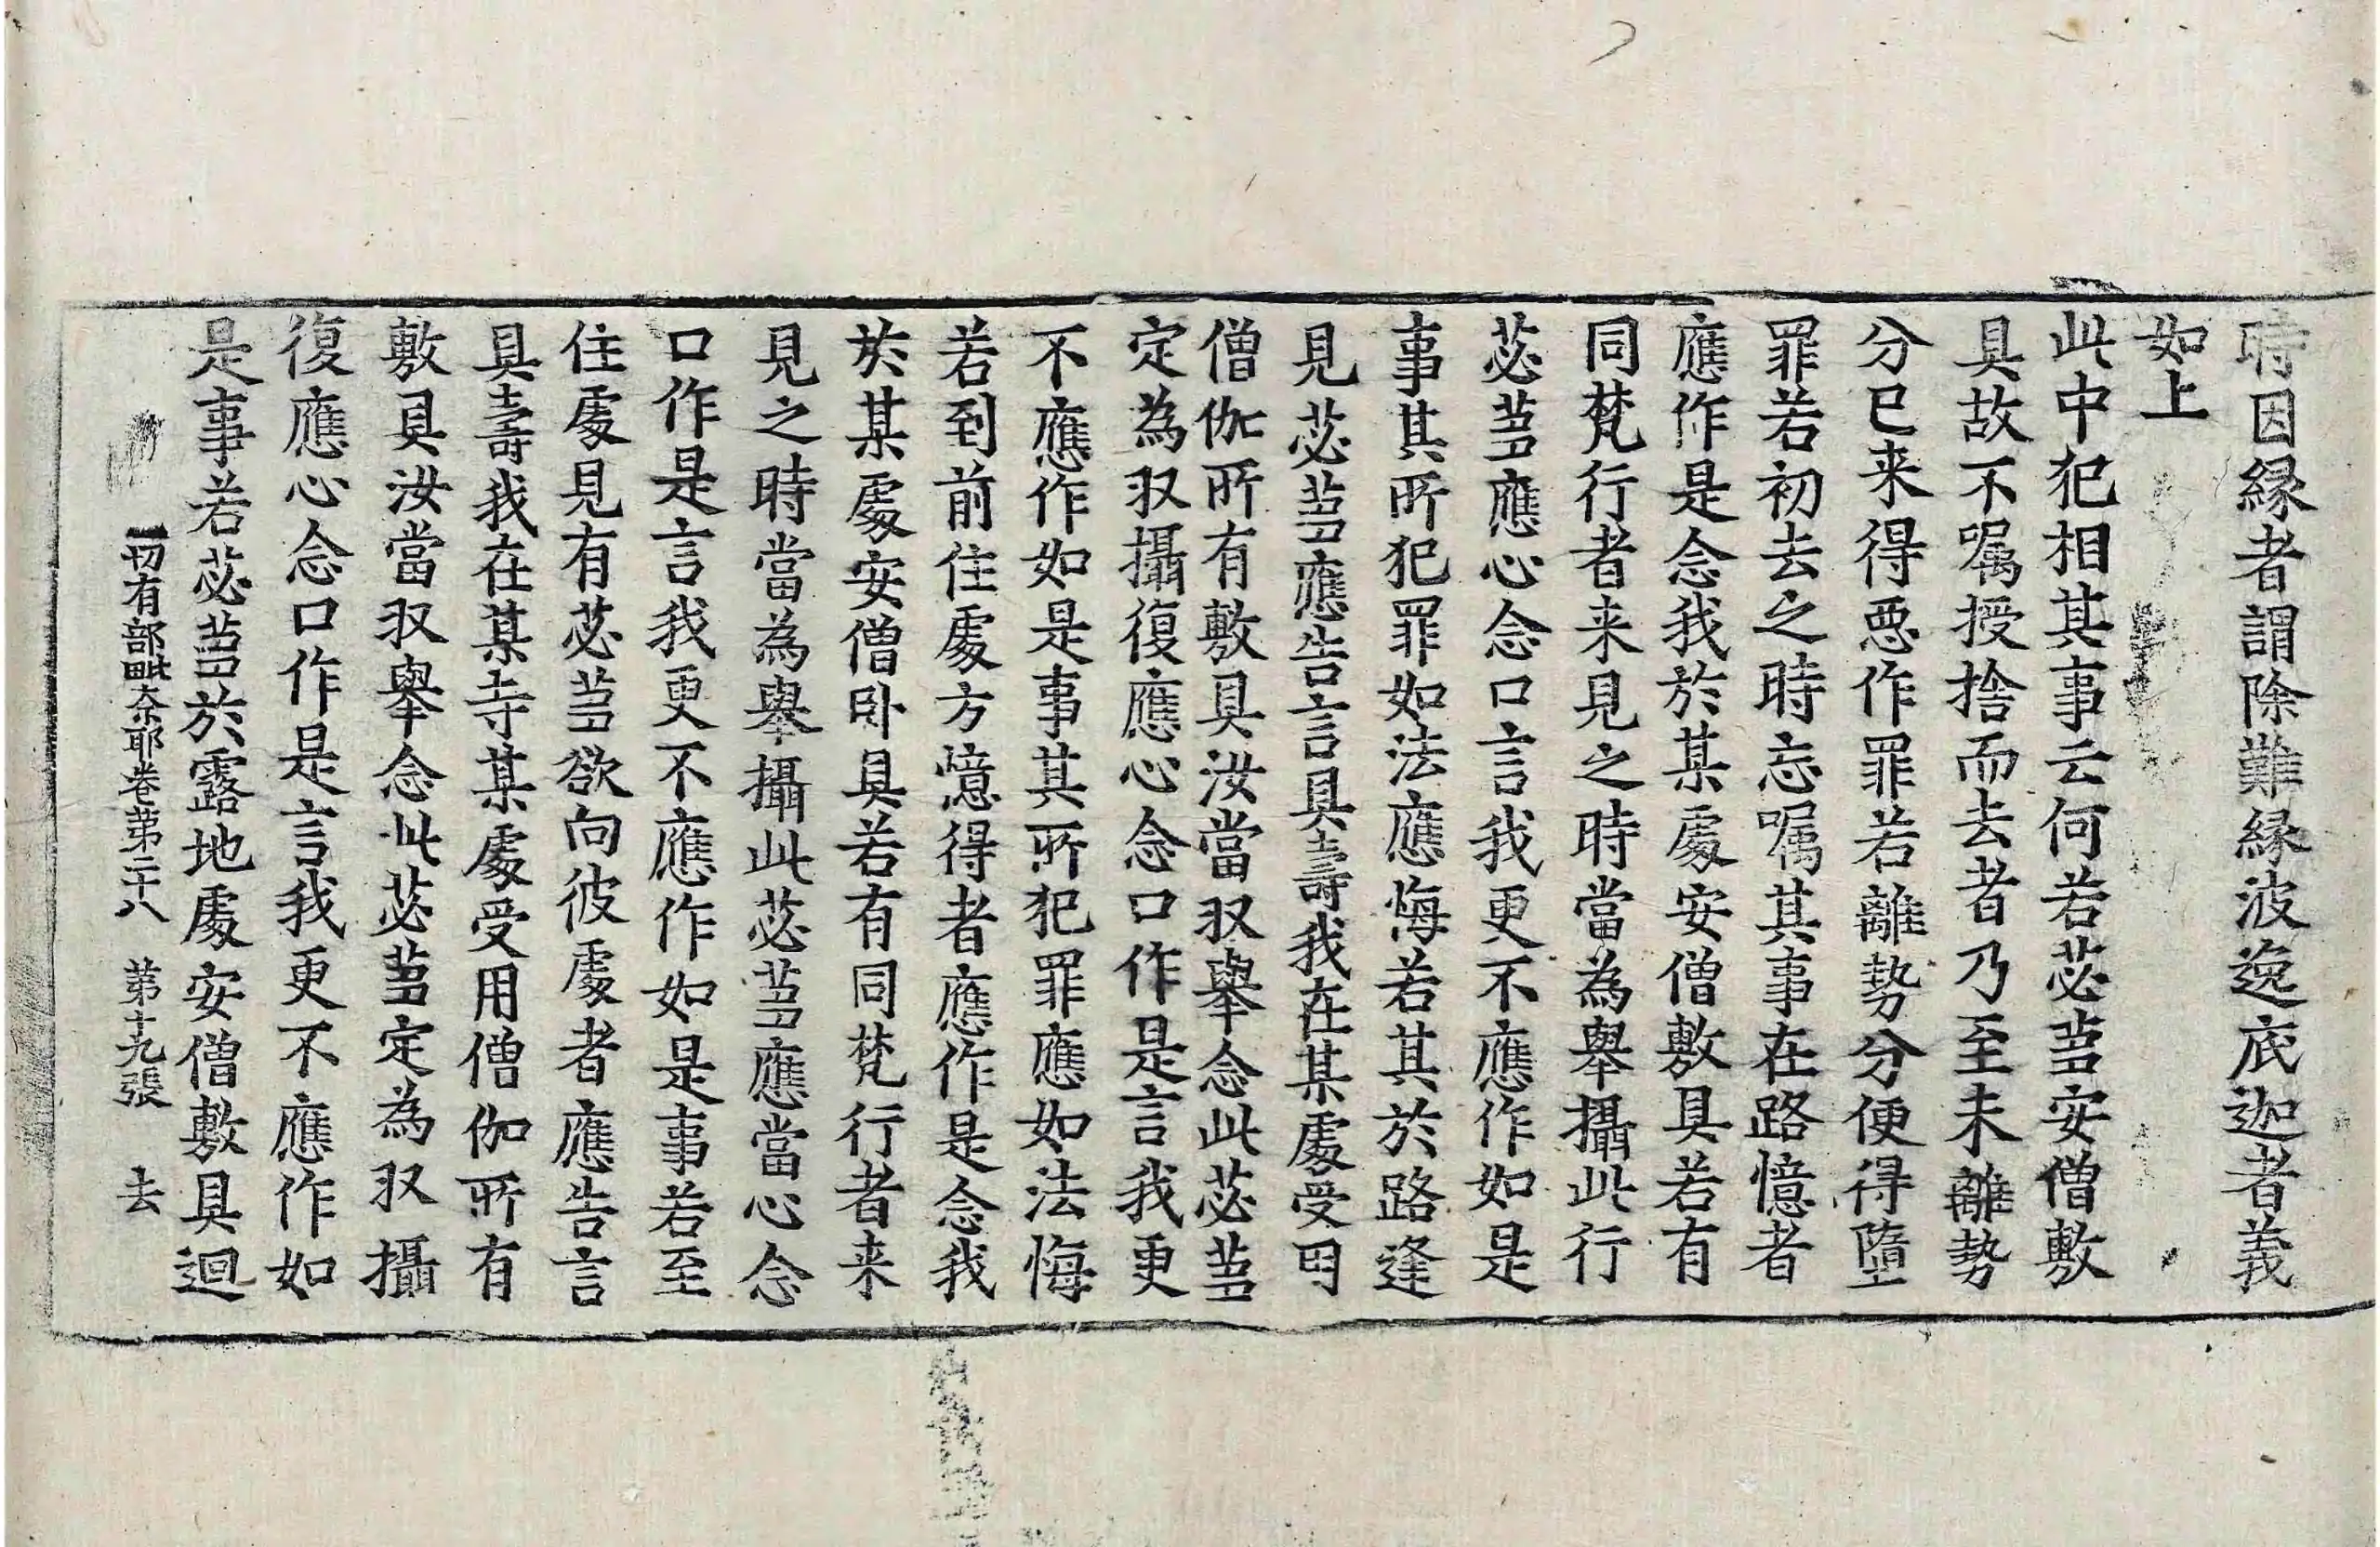 時因縁者謂除難縁波逸底迦者義
如上
此中犯相其事云何若苾芻安僧敷
具故不嘱授捨而去者乃至未離勢
分已来得悪作罪若離勢分便得墮
罪若初去之時忘嘱其事在路憶者
應作是念我於某處安僧敷具若有
同梵行者来見之時當為舉攝此行
苾芻應心念口言我更不應作如是
事其所犯罪如法應悔若其於路逢
見苾芻應告言具壽我在某處受用
僧伽所有敷具汝當収舉念此苾芻
定為収攝復應心念口作是言我更
不應作如是事其所犯罪應如法悔
若到前住處方憶得者應作是念我
於某處安僧卧具若有同梵行者来
見之時當為舉攝此苾芻應當心念
口作是言我更不應作如是事若至
住處見有苾芻欲向彼處者應告言
具壽我在某寺某處受用僧伽所有
敷具汝當収舉念此苾芻定為収攝
復應心念口作是言我更不應作如
是事若苾芻於露地處安僧敷具迴
一切有部毗奈耶卷第二十八 第十九張 去